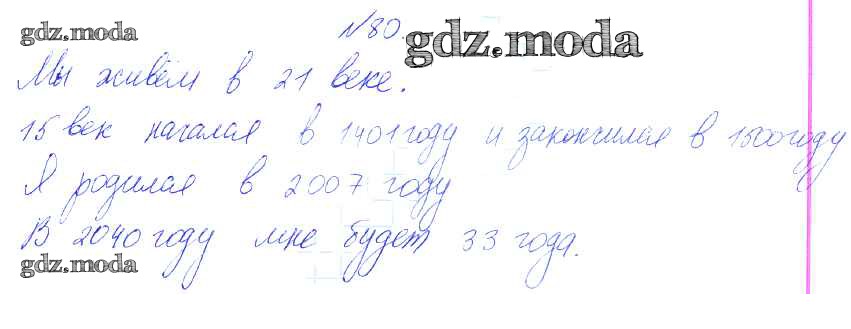 gdz.moda
№80.
gdz.moda
Мы живём в 21 веке.
15 век начался в 1401 году и закончился в 1500 году
Я родился в 2007 году
В 2040 году мне будет 33 года.
gdz.moda